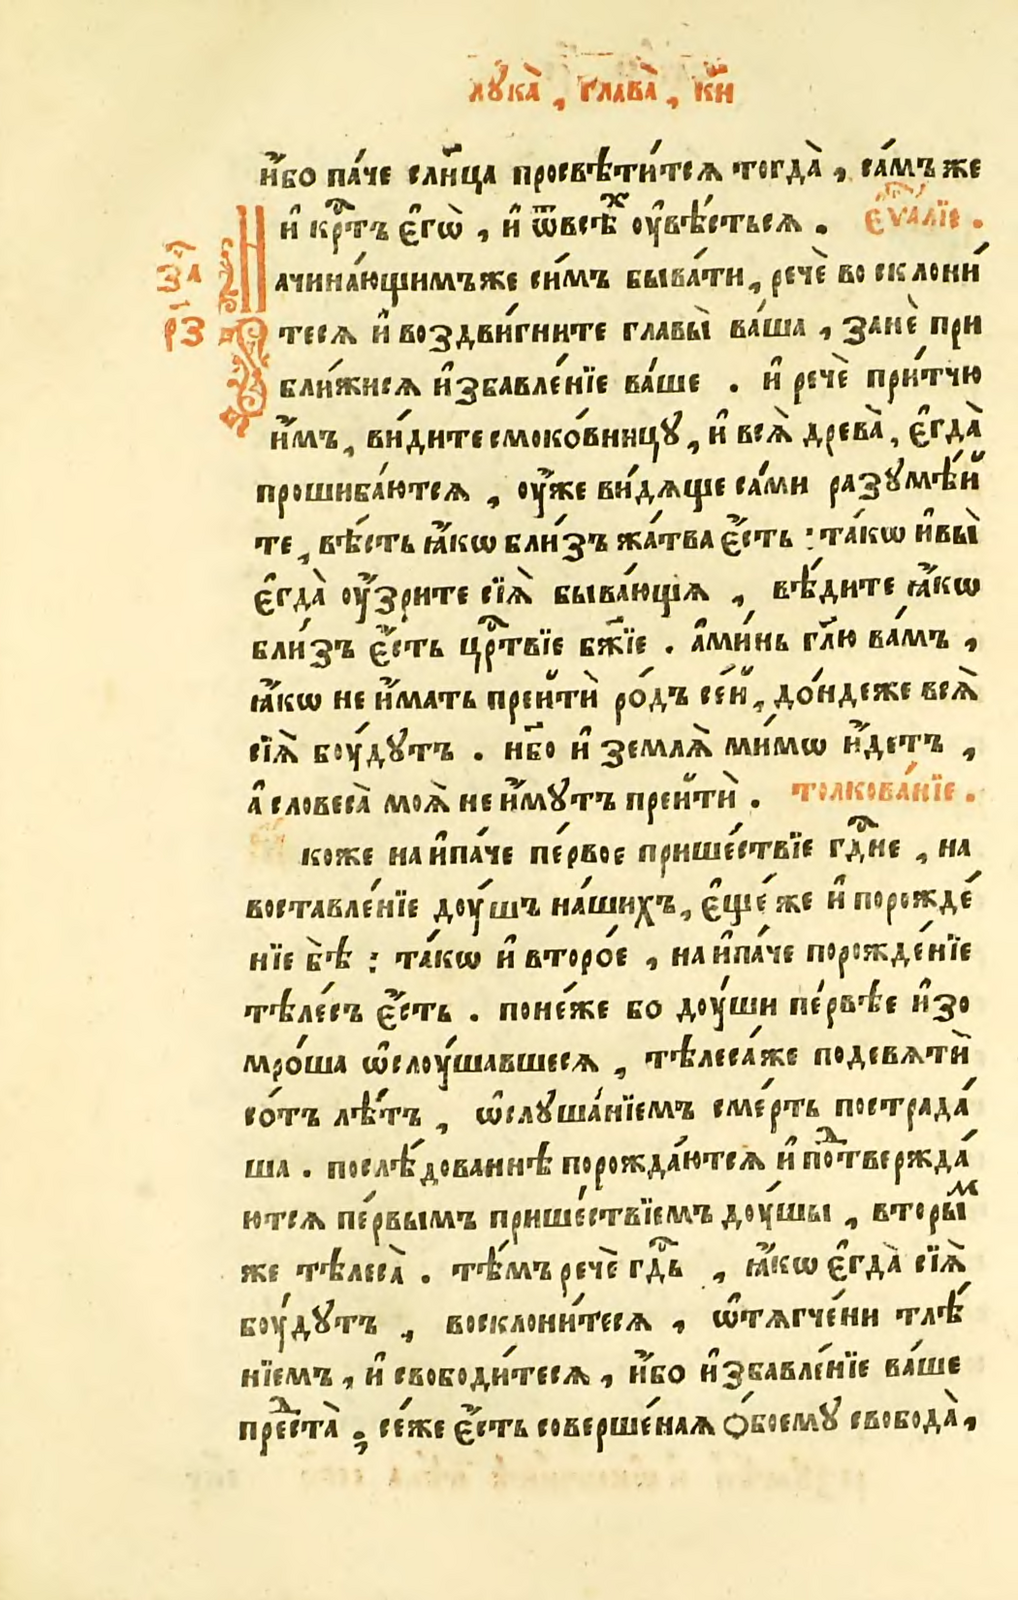 лꙋка̀, глава̀, к҃и
и҆́бо па́че сл҃нца просвѣти́тсѧ тогда̀, са́мъ же
и҆ крⷭ҇тъ є҆гѡ̀, и҆ ѿвсѣ́хъ оу҆вѣ́стьсѧ. є҆ѵⷢ҇лїе.
за҃ Начина́ющимъже си́мъ быва́ти, речѐ восклони́
р҃з тесѧ и҆ воздви́гните главы̀ ва́ша, занѐ при
бли́жисѧ и҆збавле́нїе ва́ше. и҆ речѐ при́тчю
и҆̀мъ, ви́дите смоко́вницꙋ, и҆ всѧ̀ древа̀, є҆гда̀
прошиба́ютсѧ, оу҆́же ви́дѧще са́ми разꙋмѣ́й
те, вѣ́сть ꙗ҆́кѡ бли́зъ жа́тва є҆́сть: та́кѡ и҆ вы̀
є҆гда̀ оу҆́зрите сїѧ̀ быва́ющїѧ, вѣ́дите ꙗ҆́кѡ
бли́зъ є҆́сть црⷭ҇твїе бж҃їе. а҆ми́нь гл҃ю ва́мъ,
ꙗ҆́кѡ не и҆́мать прейтѝ ро́дъ се́й, до́ндеже всѧ̀
сїѧ̀ боу́дꙋтъ. нб҃о и҆ землѧ̀ ми́мѡ и҆́детъ,
а҆ словеса̀ моѧ̀ не и҆́мꙋтъ прейтѝ. толкова́нїе.
коже наипа́че пе́рвое прише́ствїе гдⷭ҇не, на
воставле́нїе доу́шъ на́шихъ, є҆ще́ же и҆ порожде́
нїе бѣ̀: та́кѡ и҆ второ́е, наипа́че порожде́нїе
тѣле́съ є҆́сть. поне́же бо доу́ши пе́рвѣе и҆зо
мро́ша ѡ҆слоу́шавшесѧ, тѣлеса́же подевѧтѝ
со́тъ лѣ́тъ, ѡ҆слꙋша́нїемъ сме́рть пострада́
ша. послѣ́дованнѣ порожда́ютсѧ и҆ подтвержда́
ютсѧ пе́рвымъ прише́ствїемъ доу́шы, вторы́м
же тѣлеса̀. тѣ́мъ речѐ гдⷭ҇ь, ꙗ҆́кѡ є҆гда̀ сїѧ̀
боу́дꙋтъ, восклони́тесѧ, ѡ҆тѧгче́ни тлѣ́
нїемъ, и҆ свободи́тесѧ, и҆́бо и҆збавле́нїе ва́ше
предста̀, се́же є҆́сть соверше́наѧ ѻ҆боемꙋ свобода̀,